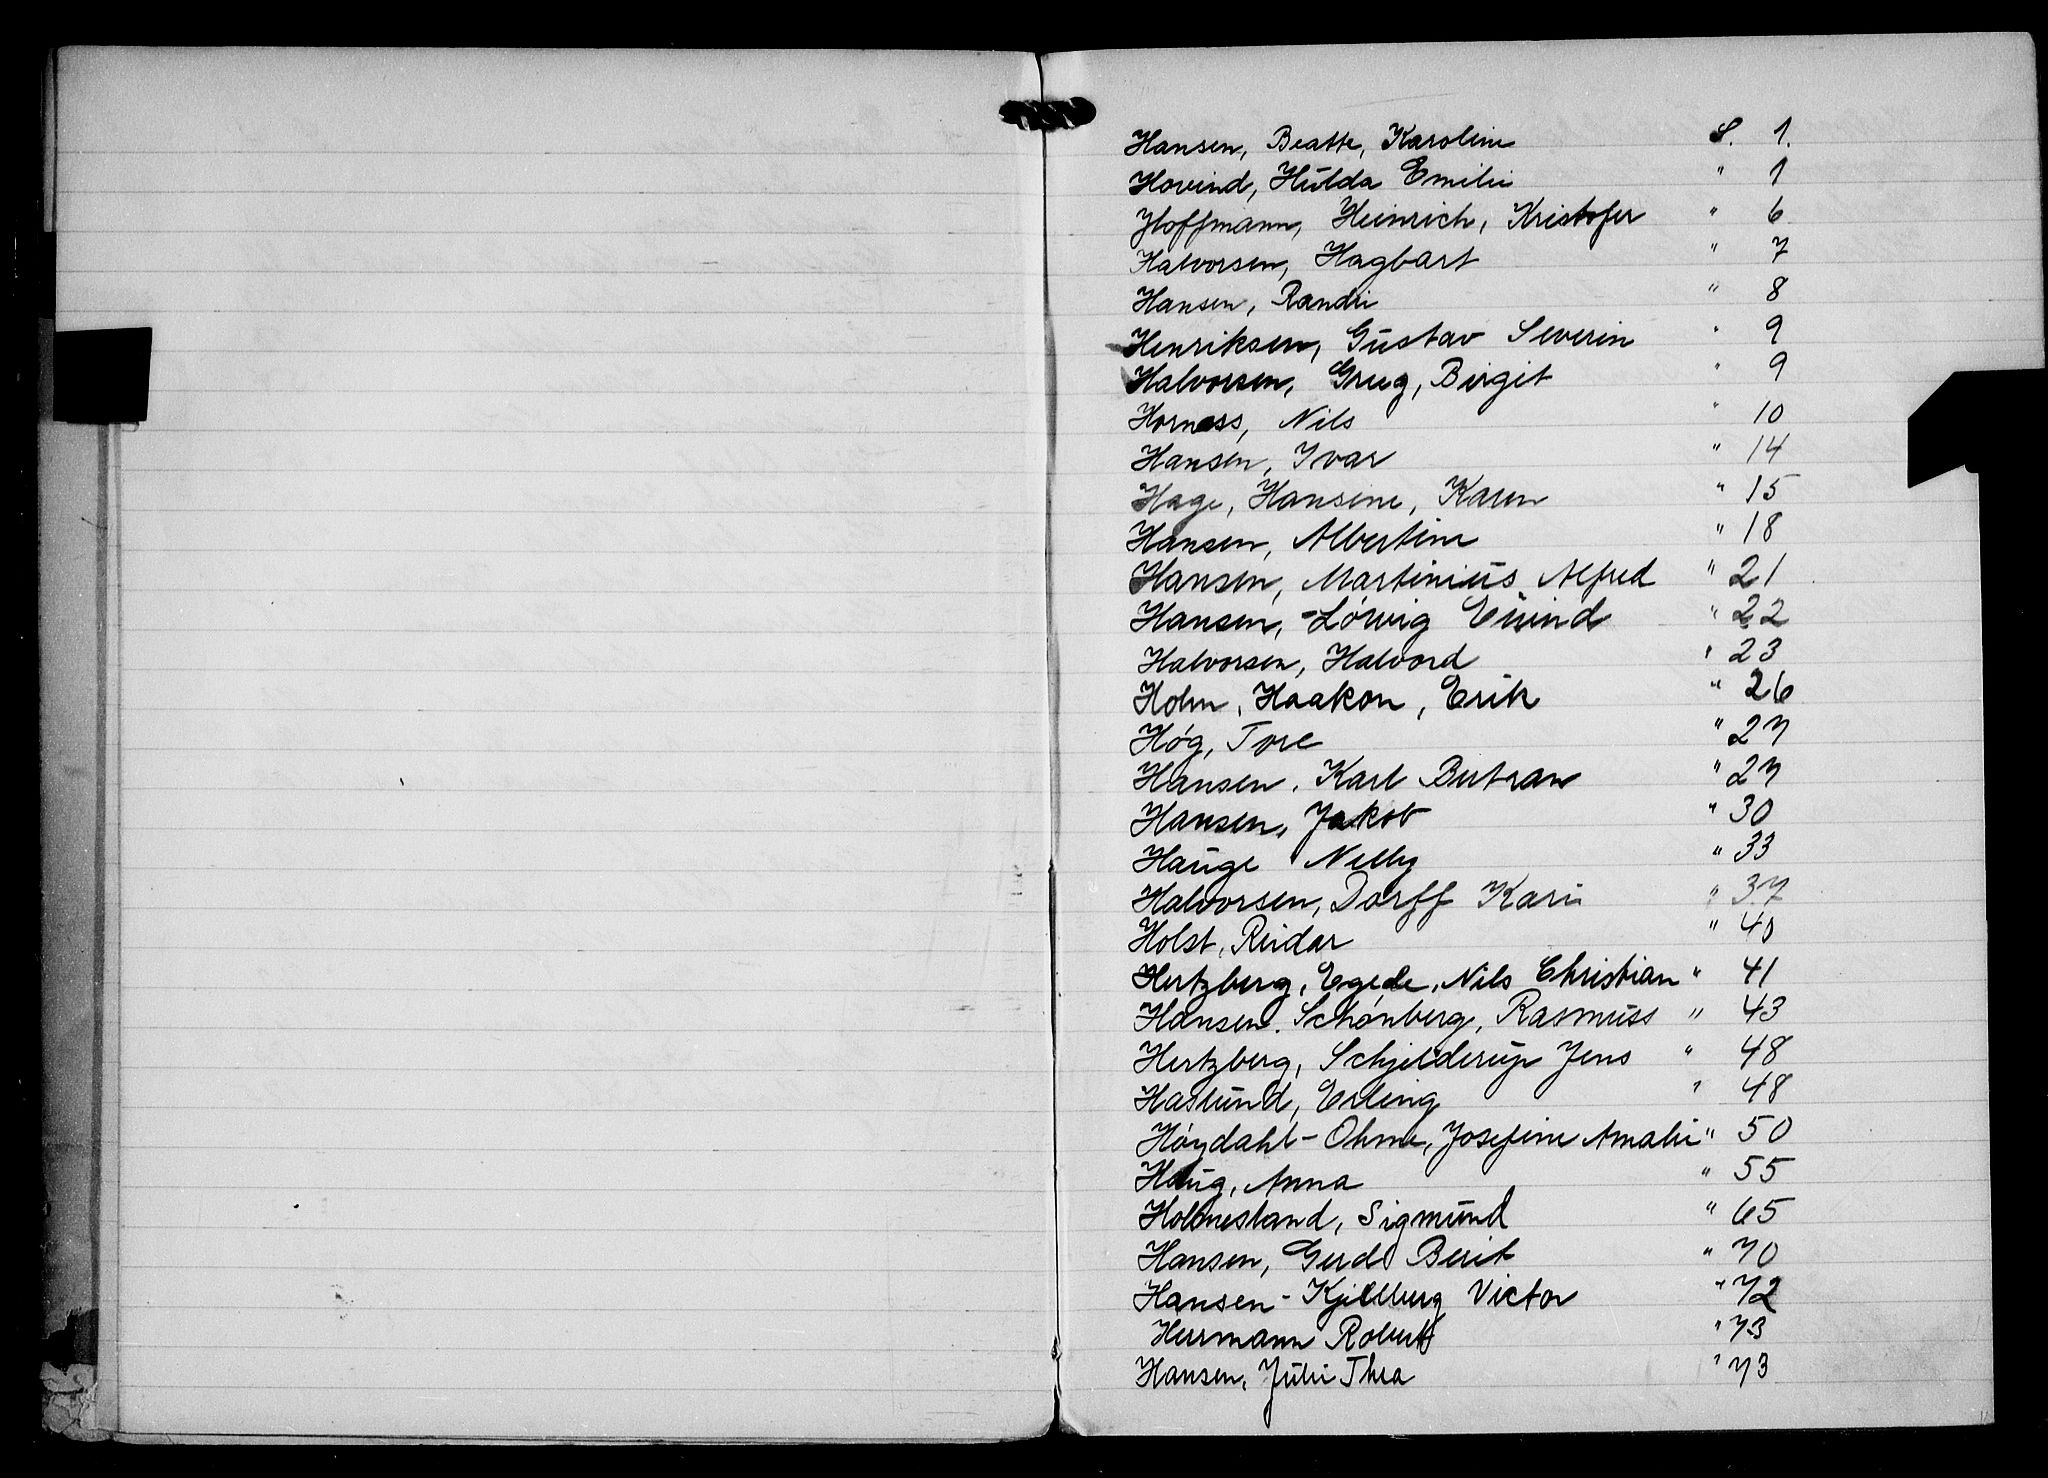 Hansen, Beatte, Karoline S. 1.
Hovind, Hulda Emilie " 1
Hoffmann, Heinrich, Kristofer " 6
Halvorsen, Hagbart " 7
Hansen, Randi " 8
Henriksen, Gustav Severin " 9
Halvorsen, Grieg, Birgit " 9
Hornæss, Nils " 10
Hansen, Ivar " 14
Hage, Hansine, Karen " 15
Hansen, Albertine " 18
Hansen, Martinius Alfred " 21
Hansen, -Lörvig Eivind " 22
Halvorsen, Halvord " 23
Holm, Haakon, Erik " 26
Høg, Tore " 27
Hansen, Karl Bertran " 27
Hansen, Jakob " 30
Hauge, Nelly " 33
Halvorsen, Dorff Kari " 37
Holst, Reidar " 40
Hertzberg, Egede, Nils Christian " 41
Hansen. Schønberg, Rasmuss " 43
Hertzberg, Schjelderup Jens " 48
Haslund, Erling " 48
Høydahl-Ohme, Josefine Amalie " 50
Haug, Anna " 55
Holmesland, Sigmund " 65
Hansen, Gerd Berit " 70
Hansen-Kjellberg Victor " 72
Herrmann Robert " 73
Hansen, Julie Thea " 73